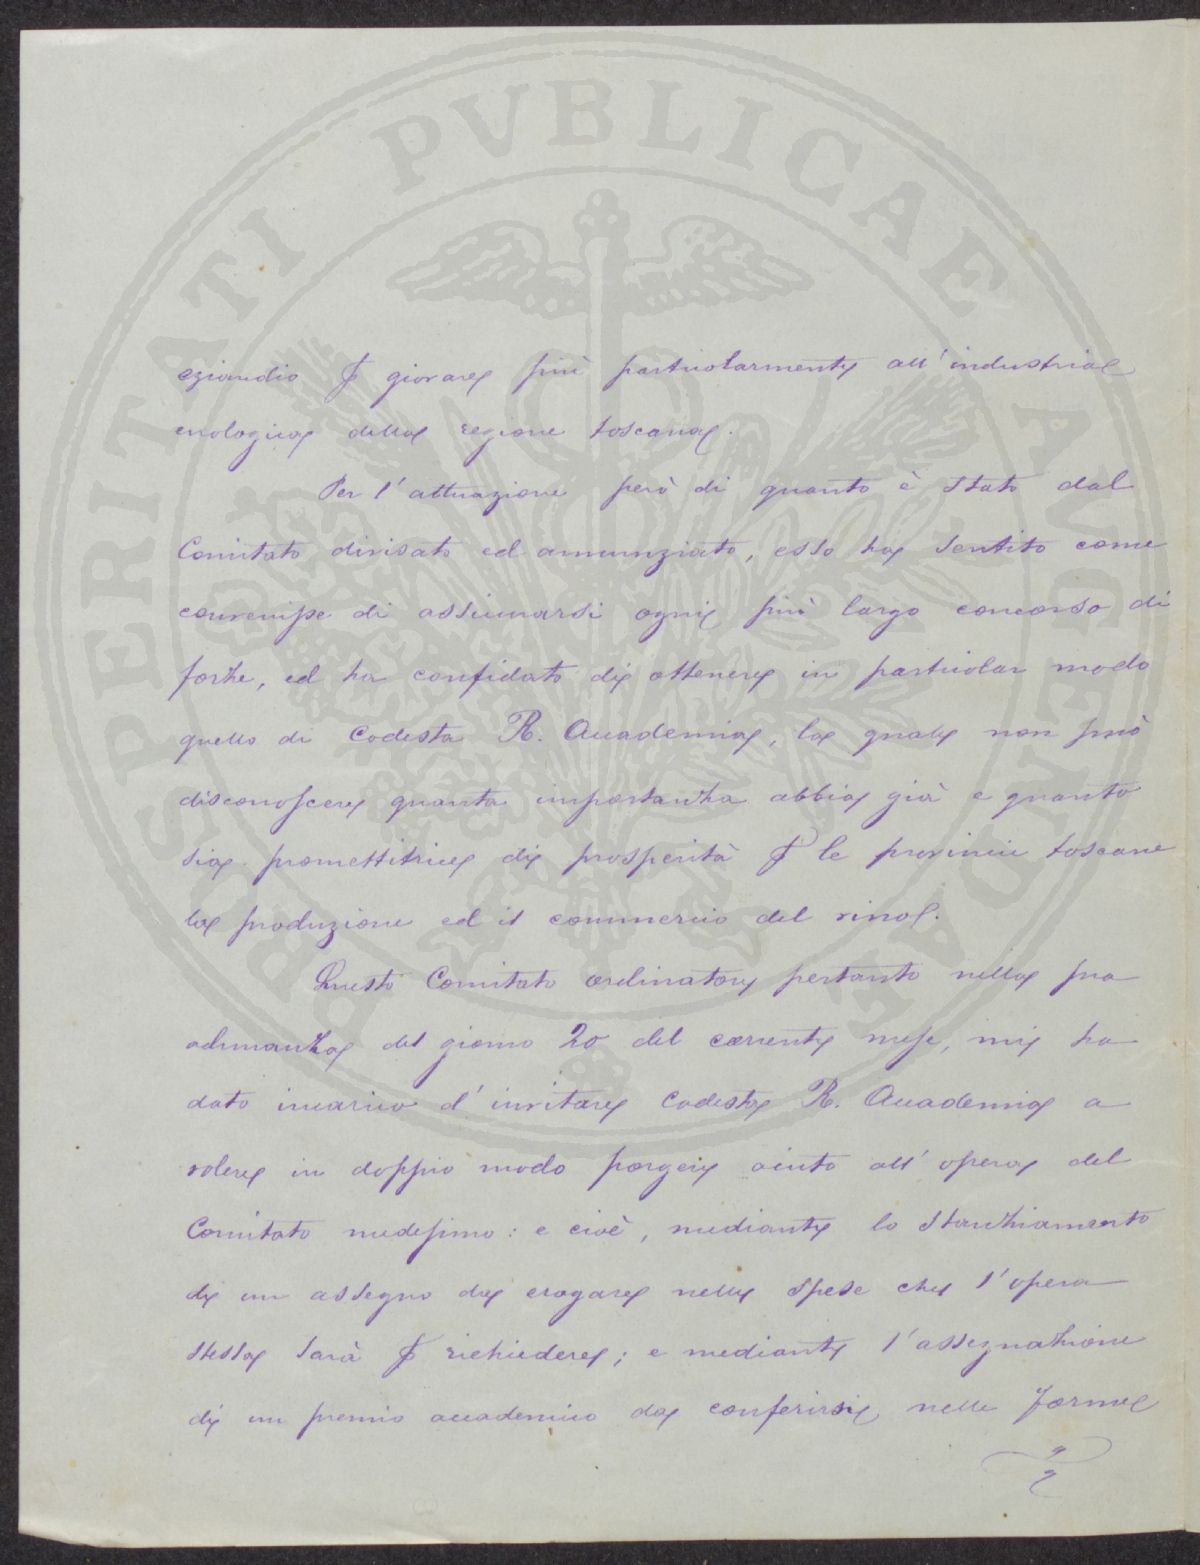 PROSPERITATI PVBLICAE AVGENDAE
eziandio per giovare più particolarmente all'industria
enologica della regione toscana.
Per l'attuazione però di quanto è stato dal
Comitato divisato ed annunziato, esso ha sentito come
convenisse di assicurarsi ogni più largo concorso di
forze, ed ha confidato di ottenere in particolar modo
quello di codesta R. Accademia, la quale non può
disconoscere quanta importanza abbia già e quanto
sia promettitrice di prosperità per le provincie toscane
la produzione ed il commercio del vino.
Questo Comitato ordinatore pertanto nella sua
adunanza del giorno 20 del corrente mese, mi ha
dato incarico d'invitare codesta R. Accademia a
volere in doppio modo porgere aiuto all'opera del
Comitato medesimo: e cioè, mediante lo stanziamento
di un assegno da erogare nelle spese che l'opera
stessa sarà per richiedere; e mediante l'assegnazione
di un premio accademico da conferirsi nelle forme